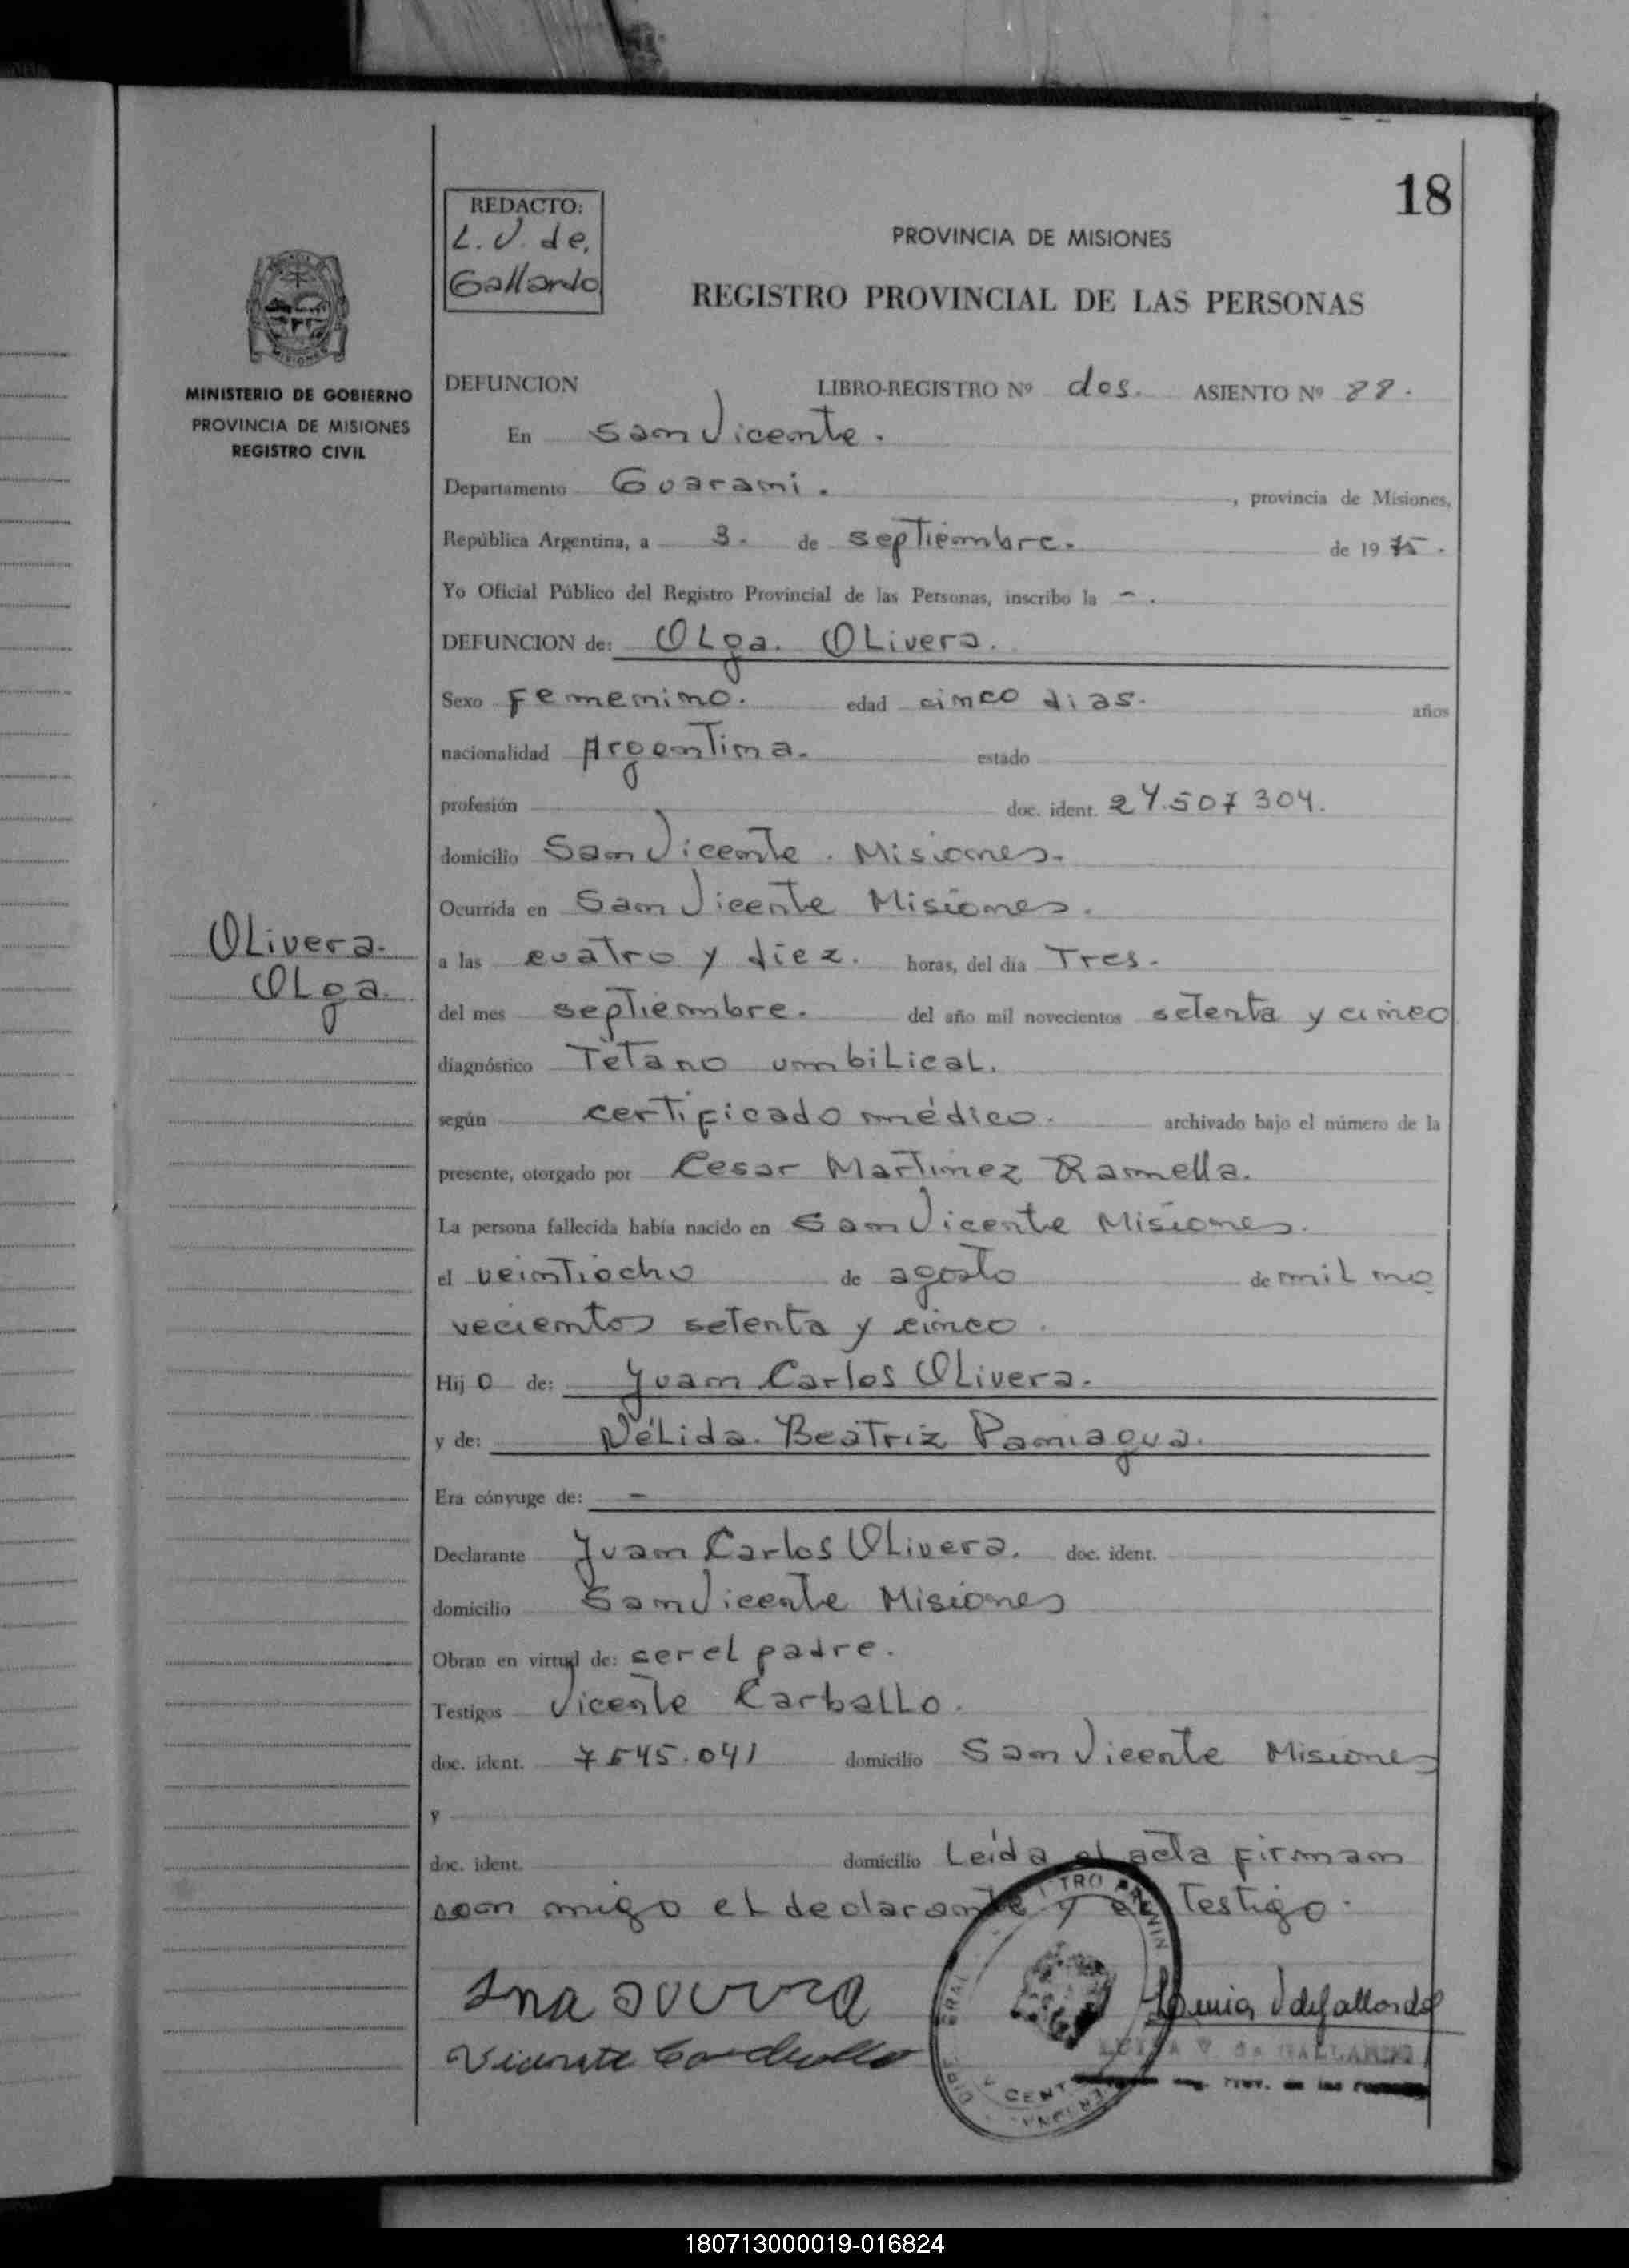 18
REDACTO:
L. V. de,
Gallardo
PROVINCIA DE MISIONES
REGISTRO PROVINCIAL DE LAS PERSONAS
MINISTERIO DE GOBIERNO
PROVINCIA DE MISIONES
REGISTRO CIVIL
DEFUNCION LIBRO-REGISTRO Nº dos. ASIENTO Nº 88.
En San Vicente.
Departamento Guarani. , provincia de Misiones,
República Argentina, a 3. de septiembre. de 19 75.
Yo Oficial Público del Registro Provincial de las Personas, inscribo la -.
DEFUNCION de: Olga. Olivera.
Sexo Femenino. edad cinco dias. años
nacionalidad Argentina. estado
profesión doc. ident. 24.507 304.
domicilio San Vicente. Misiones.
Ocurrida en San Vicente Misiones.
Olivera.
Olga.
a las cuatro y diez. horas, del día Tres.
del mes septiembre. del año mil novecientos setenta y cinco
diagnóstico Tétano umbilical.
según certificado médico. archivado bajo el número de la
presente, otorgado por Cesar Martinez Ramella.
La persona fallecida había nacido en San Vicente Misiones.
el veintiocho de agosto de mil no
vecientos setenta y cinco.
Hij o de: Juan Carlos Olivera.
y de: Nélida. Beatriz Paniagua.
Era cónyuge de: -
Declarante Juan Carlos Olivera. doc. ident.
domicilio San Vicente Misiones
Obran en virtud de: ser el padre.
Testigos Vicente Carballo.
doc. ident. 7545.041 domicilio San Vicente Misiones
y
doc. ident. domicilio Leída el acta firman
con migo el declarante y el Testigo.
Vicente Carballo
LUISA V. de GALLARDO
180713000019-016824